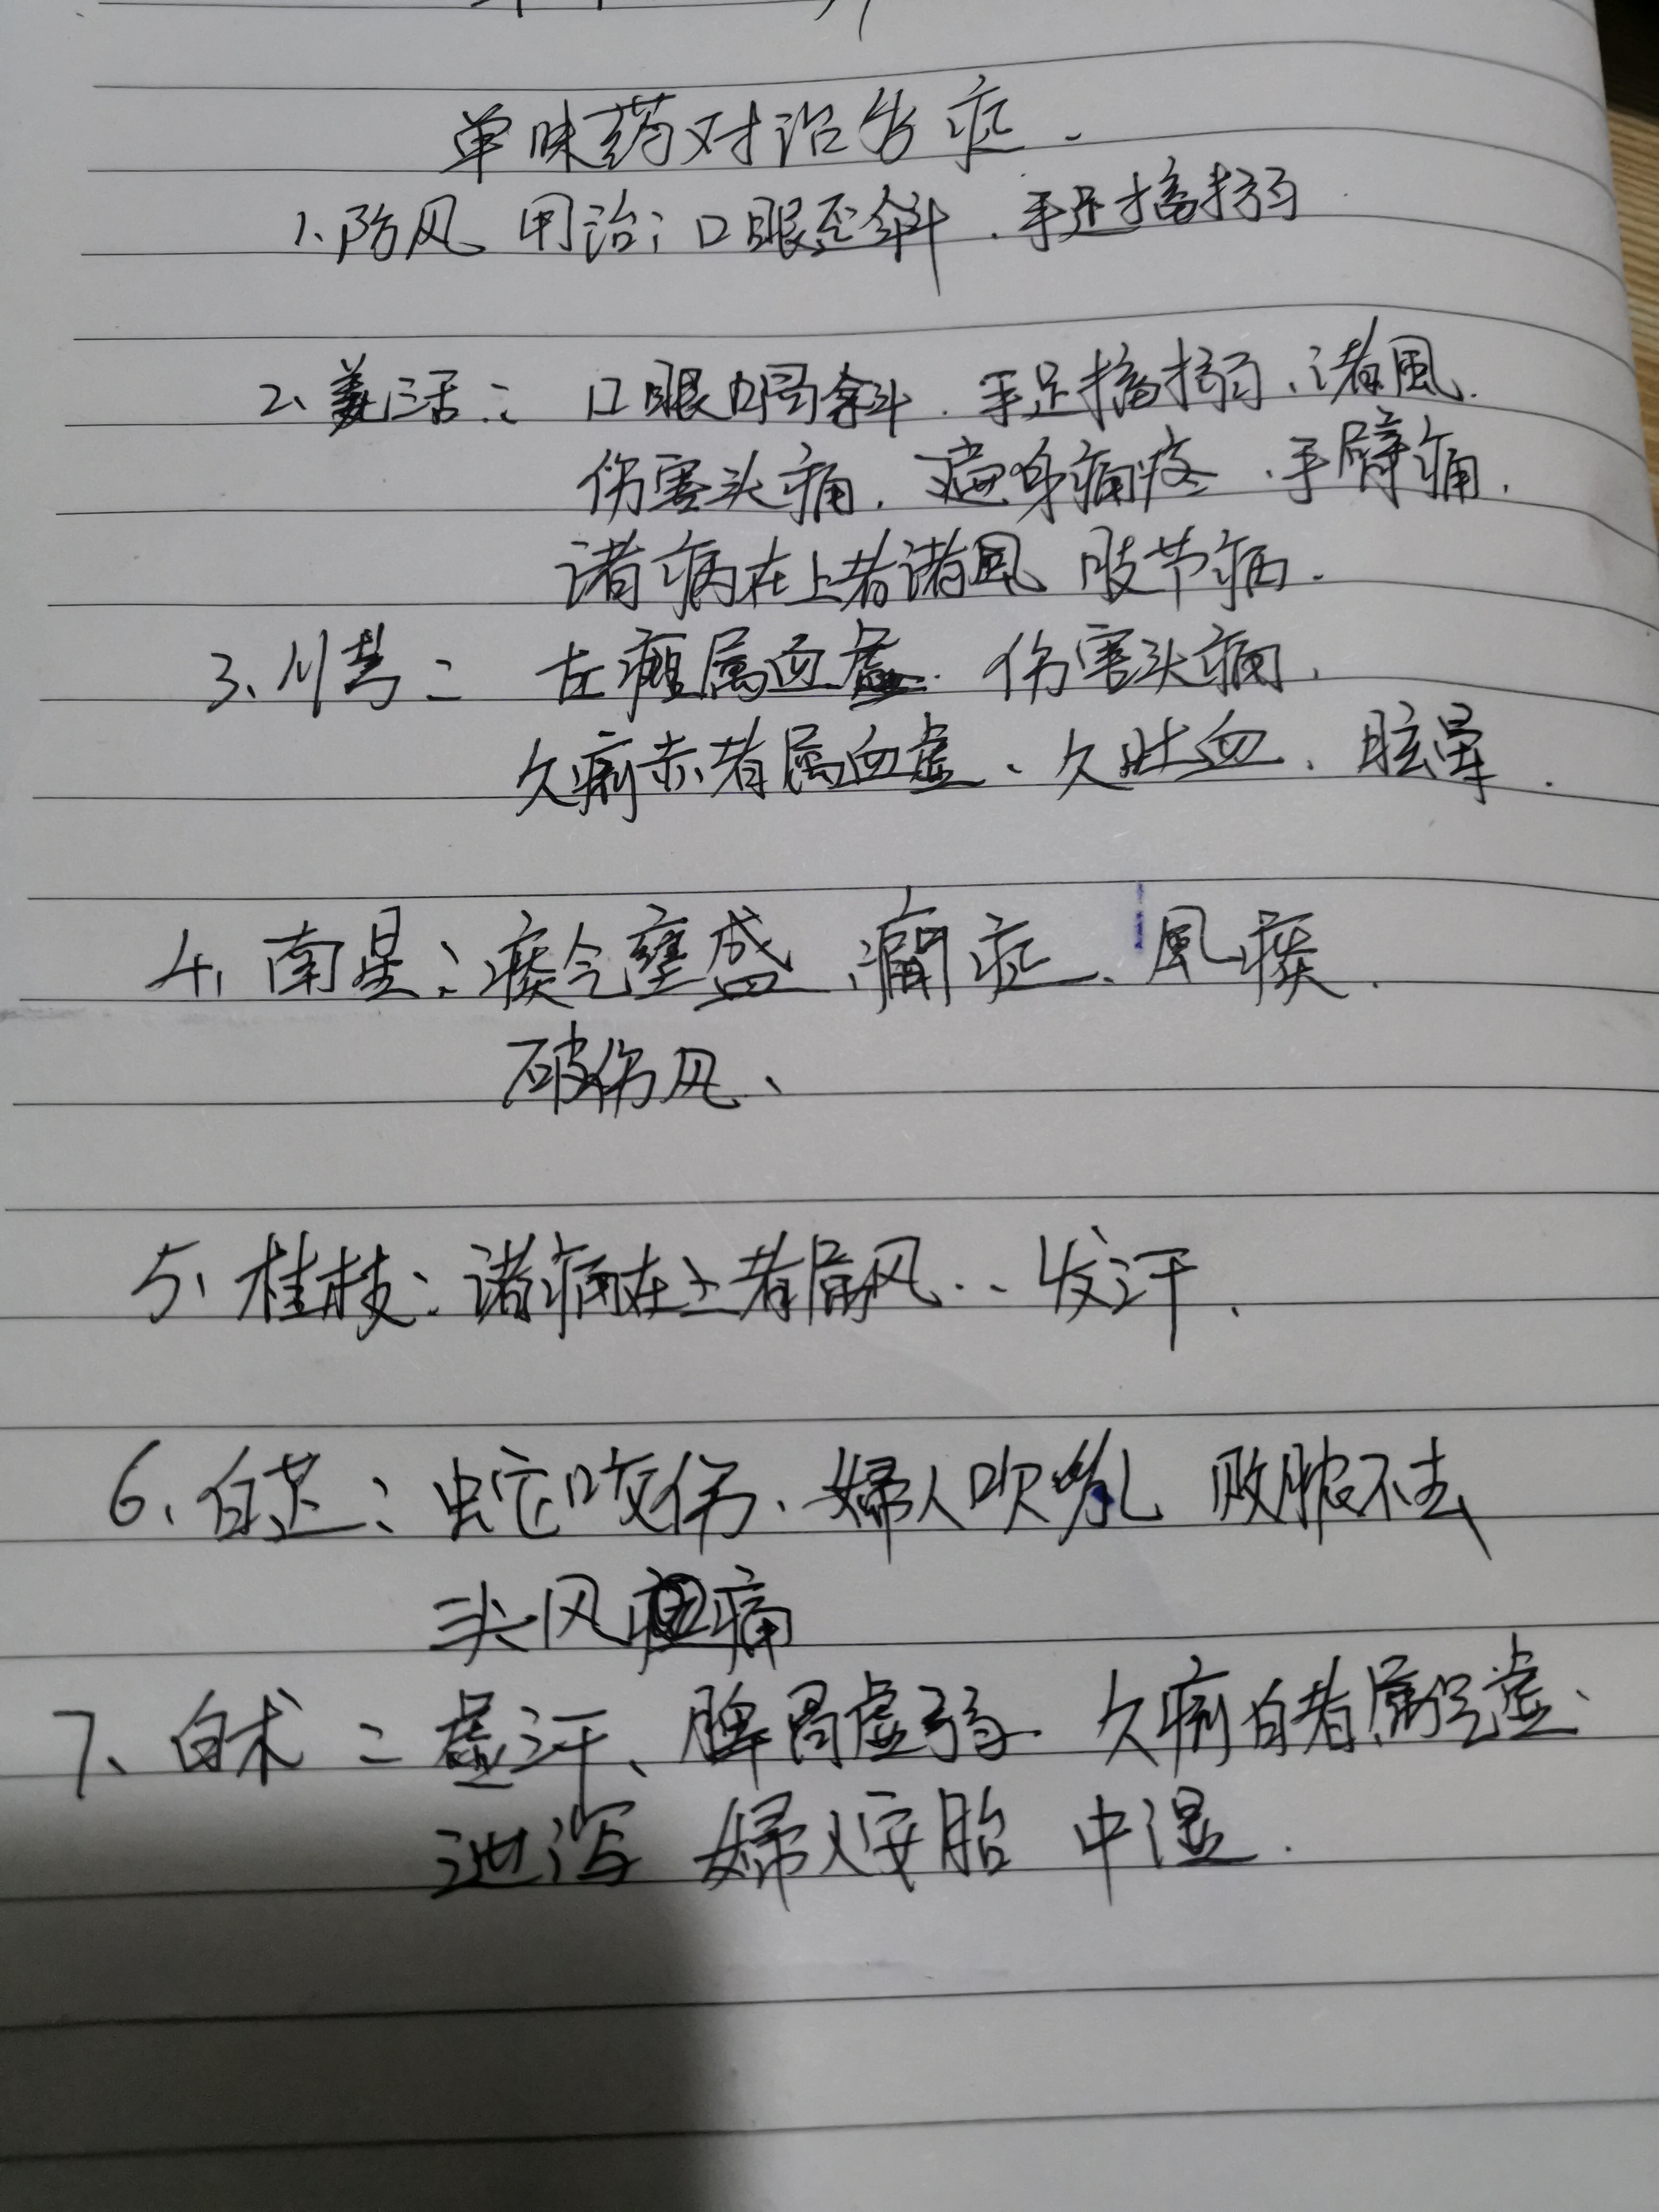 单味药对治各症.
1、防风 用治: 口眼歪斜、手足搐搦
2、羌活: 口眼喎斜、手足搐搦、诸風.
伤害头痛. 遍身痛疼、手臂痛.
诸病在上者诸風 肢节病.
3、川芎: 左瘫属血虚. 伤害头痛.
久病赤者属血虚、久吐血、眩晕.
4、南星: 痰气壅盛、癎症、風痰.
破伤风、
5、桂枝: 诸病在上者属风.. 发汗.
6、白芷: 蛇咬伤、婦人吹乳 败脓不去
头风痛
7、白术: 虚汗、脾胃虚弱. 久病白者属气虚、
泄泻 婦人安胎 中湿.